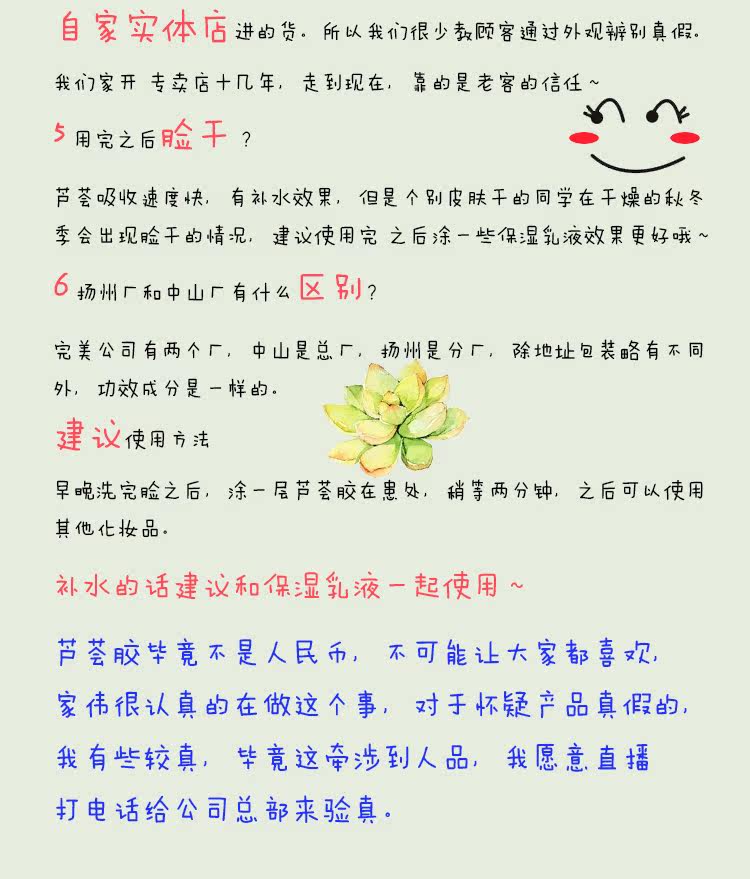 自家实体店进的货。所以我们很少教顾客通过外观辨别真假。
我们家开 专卖店十几年,走到现在,靠的是老客的信任~
5 用完之后脸干?
芦荟吸收速度快,有补水效果,但是个别皮肤干的同学在干燥的秋冬
季会出现脸干的情况,建议使用完 之后涂一些保湿乳液效果更好哦~
6 扬州厂和中山厂有什么区别?
完美公司有两个厂,中山是总厂,扬州是分厂,除地址包装略有不同
外,功效成分是一样的。
建议使用方法
早晚洗完脸之后,涂一层芦荟胶在患处,稍等两分钟,之后可以使用
其他化妆品。
补水的话建议和保湿乳液一起使用~
芦荟胶毕竟不是人民币,不可能让大家都喜欢,
家伟很认真的在做这个事,对于怀疑产品真假的,
我有些较真,毕竟这牵涉到人品,我愿意直播
打电话给公司总部来验真。